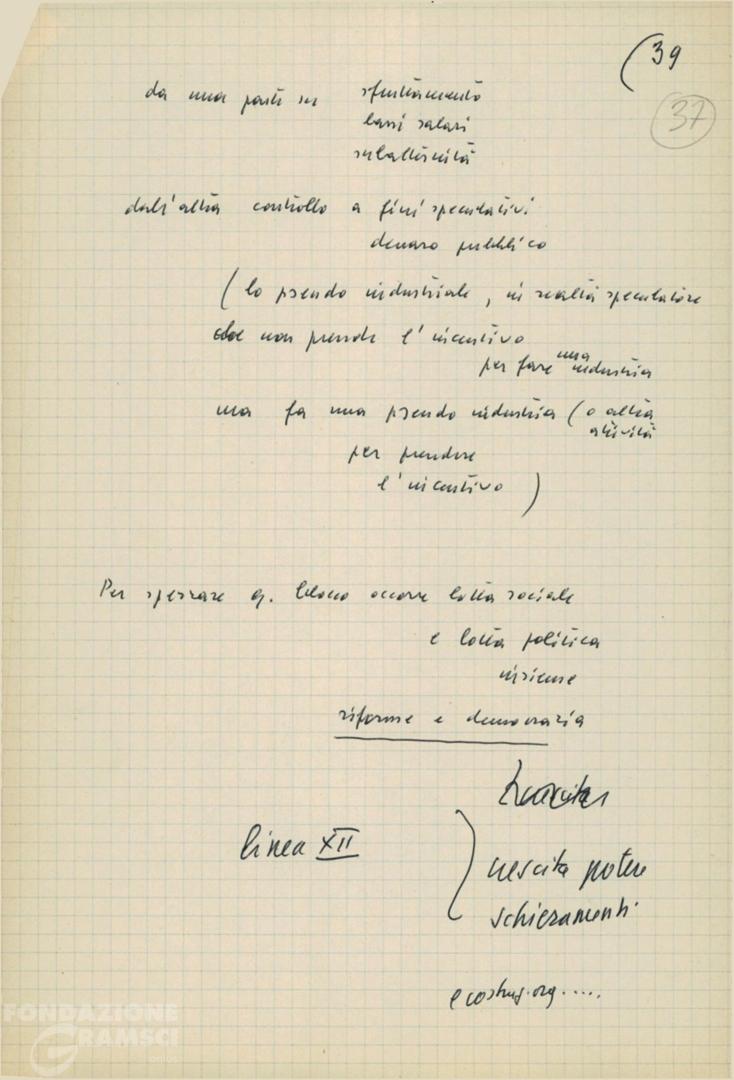 (39
37
da una parte su sfruttamento
bassi salari
subalternità
dall'altra controllo a fini speculativi
denaro pubblico
(lo pseudo industriale, in realtà speculatore
che non prende l'incentivo
per fare una industria
ma fa una pseudo industria (o altra
attività
per prendere
l'incentivo)
Per spezzare q. blocco occorre lotta sociale
e lotta politica
insieme
riforme e democrazia
linea XII
crescita potere
schieramenti
e costruz. org.....
FONDAZIONE
GRAMSCI